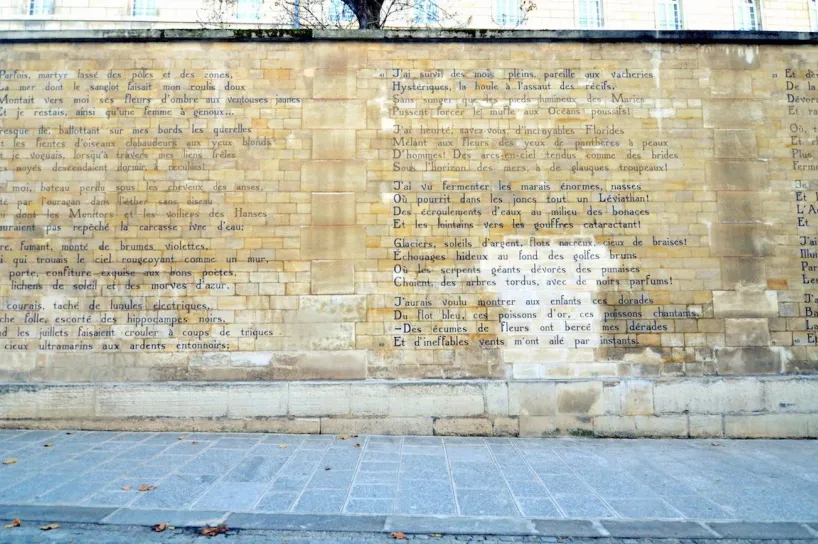 Parfois, martyr lassé des pôles et des zones,
La mer dont le sanglot faisait mon roulis doux
Montait vers moi ses fleurs d'ombre aux ventouses jaunes
Et je restais, ainsi qu'une femme à genoux...
resque île, ballottant sur mes bords les querelles
et les fientes d'oiseaux clabaudeurs aux yeux blonds
t je voguais, lorsqu'à travers mes liens frêles
noyés descendaient dormir, à reculons!
moi, bateau perdu sous les cheveux des anses,
té par l'ouragan dans l'éther sans oiseau
dont les Monitors et les voiliers des Hanses
auraient pas repêché la carcasse ivre d'eau;
re, fumant, monté de brumes violettes,
i qui trouais le ciel rougeoyant comme un mur,
porte, confiture exquise aux bons poètes,
lichens de soleil et des morves d'azur,
courais, taché de lunules électriques,
che folle, escorté des hippocampes noirs,
nd les juillets faisaient crouler à coups de triques
cieux ultramarins aux ardents entonnoirs;
« J'ai suivi, des mois pleins, pareille aux vacheries
Hystériques, la houle à l'assaut des récifs,
Sans songer que les pieds lumineux des Maries
Pussent forcer le mufle aux Océans poussifs!
J'ai heurté, savez-vous, d'incroyables Florides
Mêlant aux fleurs des yeux de panthères à peaux
D'hommes! Des arcs-en-ciel tendus comme des brides
Sous l'horizon des mers, à de glauques troupeaux!
J'ai vu fermenter les marais énormes, nasses
Où pourrit dans les joncs tout un Léviathan!
Des écroulements d'eaux au milieu des bonaces
Et les lointains vers les gouffres cataractant!
Glaciers, soleils d'argent, flots nacreux, cieux de braises!
Échouages hideux au fond des golfes bruns
Où les serpents géants dévorés des punaises
Choient, des arbres tordus, avec de noirs parfums!
J'aurais voulu montrer aux enfants ces dorades
Du flot bleu, ces poissons d'or, ces poissons chantants.
—Des écumes de fleurs ont bercé mes dérades
« Et d'ineffables vents m'ont ailé par instants.
» Et dè
De la
Dévor
Et ra
Où, t
Et r
Plus
Ferme
Je
Et l
L'A
Et
J'ai
Illum
Par
Les
J'ai
Ba
La
« E